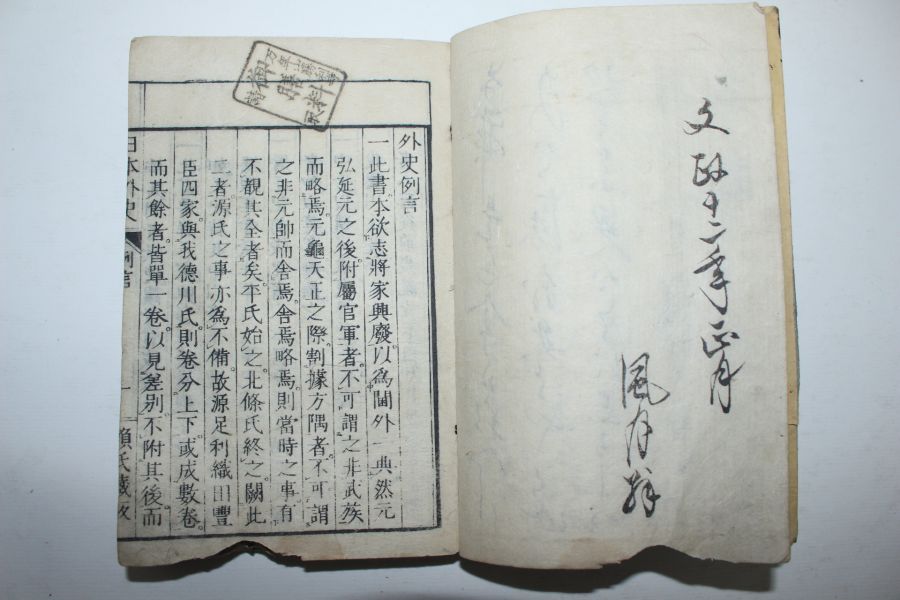 文政十二年正月
風月
外史例言
一此書本欲志將家興廢以為閫外一典然元
弘延元之後附屬官軍者不可謂之非武族
而略焉元龜天正之際割據方隅者不可謂
之非元帥而舍焉舍焉略焉則當時之事有
不覩其全者矣平氏始之北條氏終之闕此
二者源氏之事亦為不備故源足利織田豐
臣四家與我德川氏則卷分上下或成數卷
而其餘者皆單一卷以見差別不附其後而
日本外史 例言 一 賴氏藏